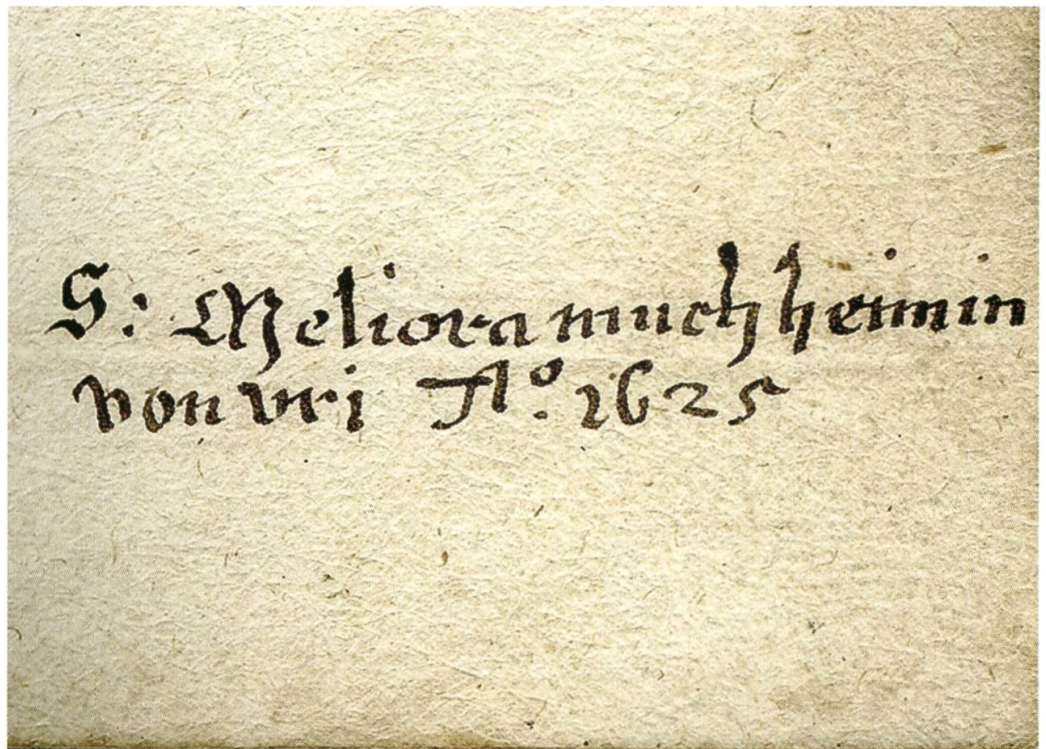 S: Meliora muchheimin
von vri A⁰. 1625